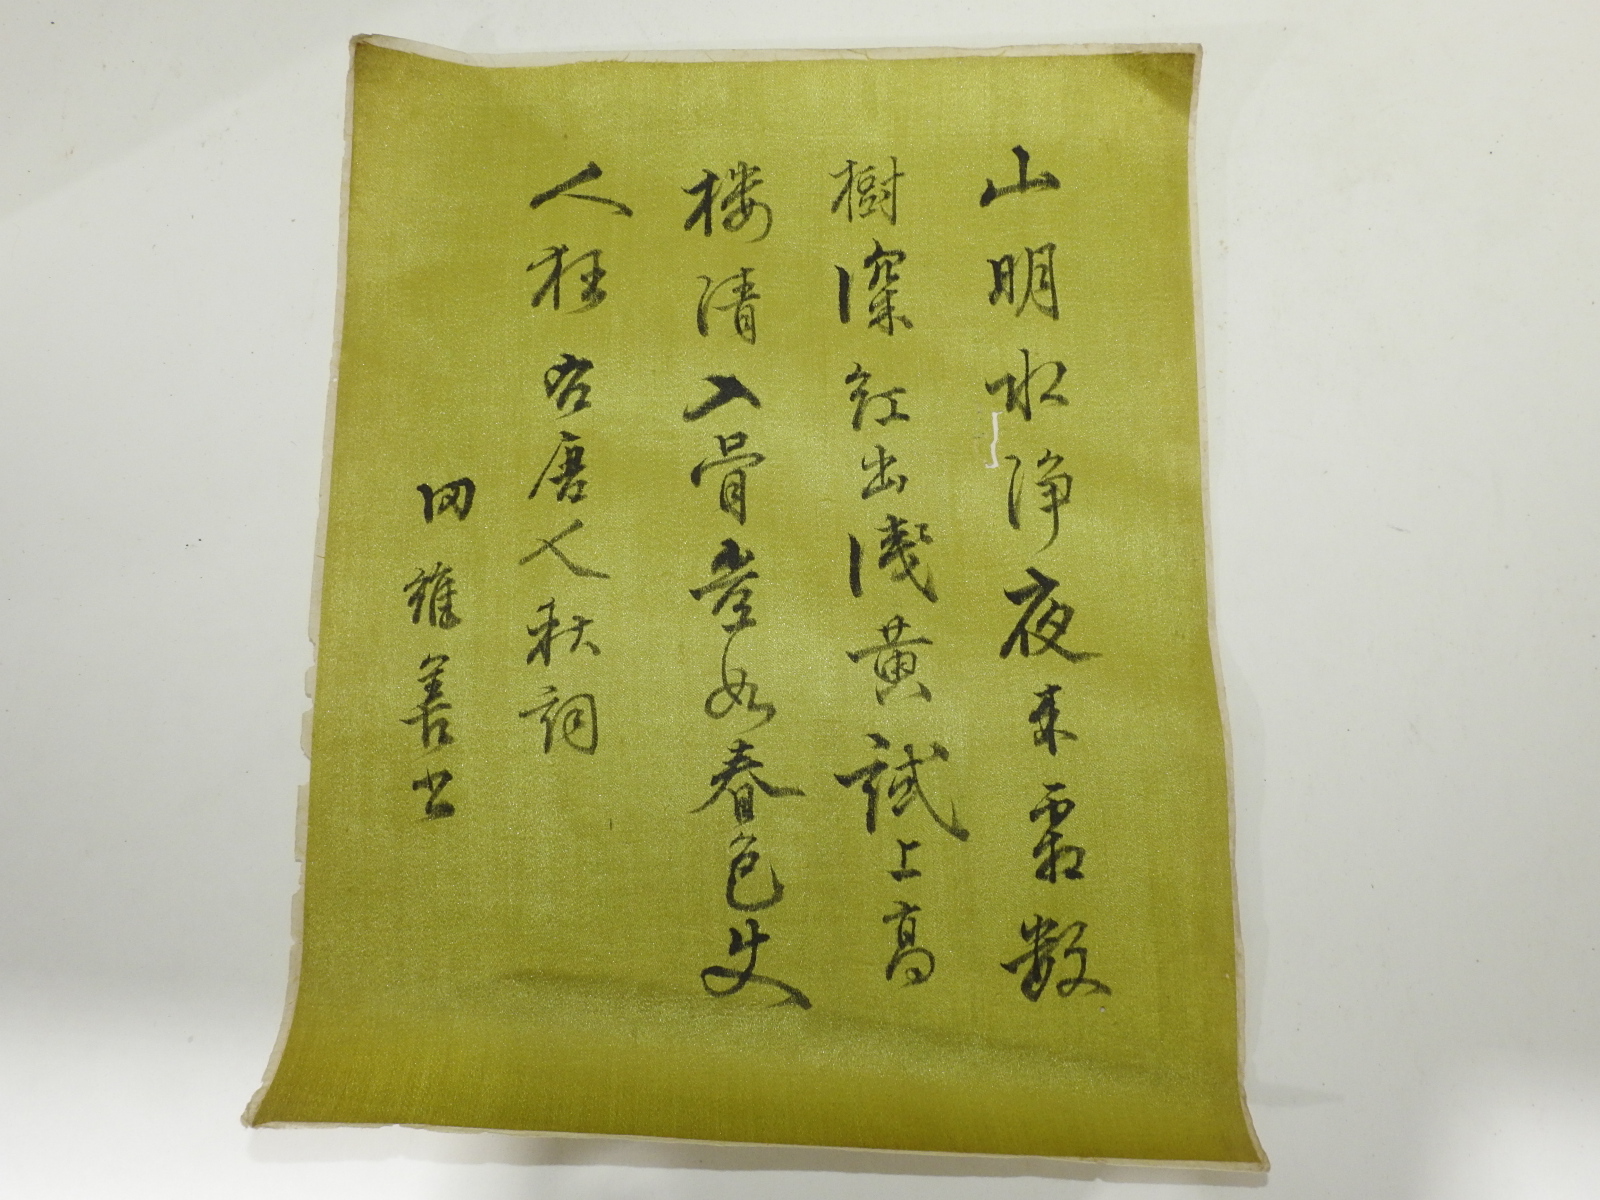 山明水浄夜来霜数
樹深紅出淺黄試上高
楼清入骨豈如春色
人狂 右唐人秋詞
維善書